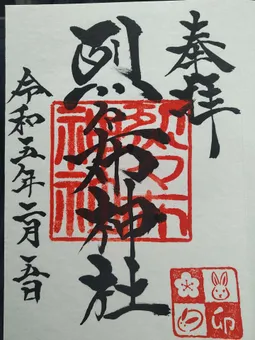 奉拝
烈々布神社
令和五年二月五日
烈々布
神社
卯